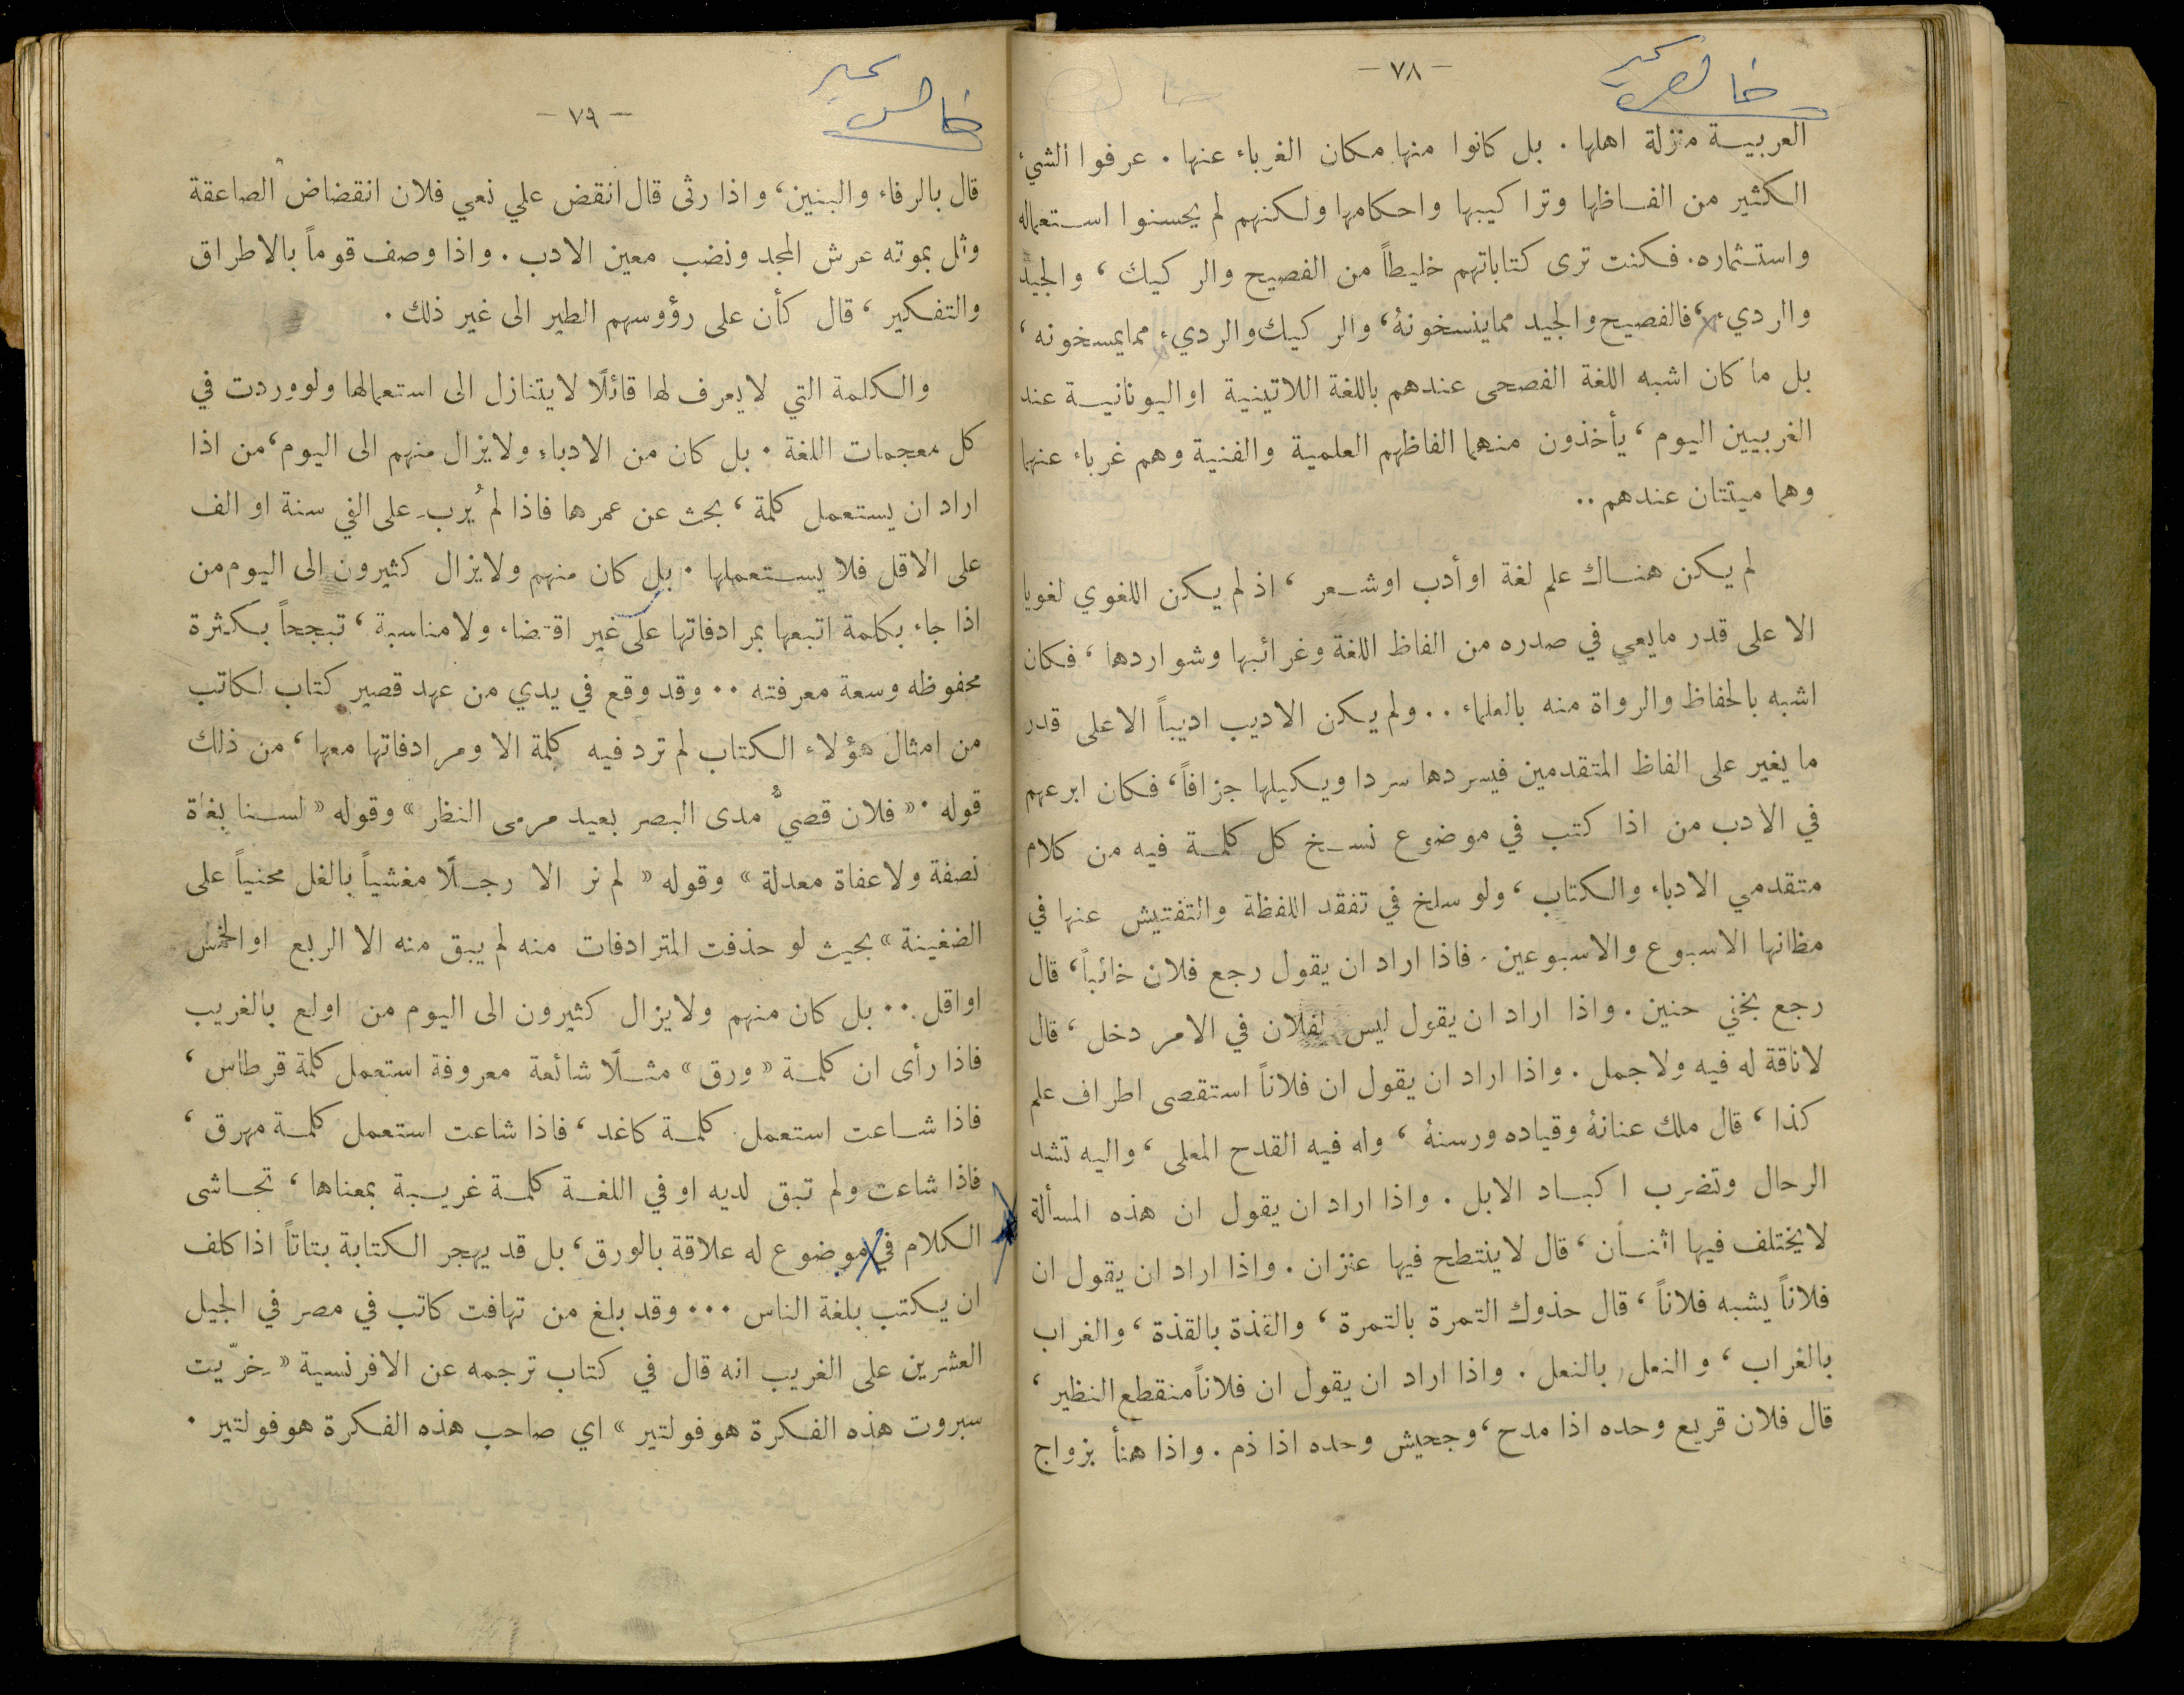 — ٧٨ —
العربيـة منزلة اهلها . بل كانوا منها مكان الغرباء عنها . عرفوا الشيء
الكثير من الفـاظها وتراكيبها واحكامها ولكنهم لم يحسنوا استعماله
واستثماره . فكنت ترى كتاباتهم خليطاً من الفصيح والركيك ، والجيد
والرديء ، فالفصيح والجيد مما ينسخونهُ ، والركيك والرديء مما يمسخونه ،
بل ما كان اشبه اللغة الفصحى عندهم باللغة اللاتينية او اليونانيـة عند
الغربيين اليوم ، يأخذون منهما الفاظهم العلمية والفنية وهم غرباء عنهما
وهما ميتتان عندهم ..
لم يكن هنـاك علم لغة او أدب او شـعر ، اذ لم يكن اللغوي لغويا
الا على قدر ما يعي في صدره من الفاظ اللغة وغرائبها وشواردها ، فكان
اشبه بالحفاظ والرواة منه بالعلماء .. ولم يكن الاديب اديباً الا على قدر
ما يغير على الفاظ المتقدمين فيسردها سردا ويكيلها جزافاً ، فكان ابرعهم
في الادب من اذا كتب في موضوع نسـخ كل كلمـة فيه من كلام
متقدمي الادباء والكتاب ، ولو سلخ في تفقد اللفظة والتفتيش عنها في
مظانها الاسبوع والاسبوعين . فاذا اراد ان يقول رجع فلان خائباً ، قال
رجع بخفي حنين . واذا اراد ان يقول ليس لفلان في الامر دخل ، قال
لا ناقة له فيه ولا جمل . واذا اراد ان يقول ان فلاناً استقصى اطراف علم
كذا ، قال ملك عنانهُ وقياده ورسنهُ ، وله فيه القدح المعلى ، واليه تشد
الرحال وتضرب اكبـاد الابل . واذا اراد ان يقول ان هذه المسألة
لا يختلف فيها اثنـان ، قال لا ينتطح فيها عنزان . واذا اراد ان يقول ان
فلاناً يشبه فلاناً ، قال حذوك التمرة بالتمرة ، والقذة بالقذة ، والغراب
بالغراب ، والنعل بالنعل . واذا اراد ان يقول ان فلاناً منقطع النظير ،
قال فلان قريع وحده اذا مدح ، وجحيش وحده اذا ذم . واذا هنأ بزواج
— ٧٩ —
قال بالرفاء والبنين ، واذا رثى قال انقض علي نعي فلان انقضاض الصاعقة
وثل بموته عرش المجد ونضب معين الادب . واذا وصف قوماً بالاطراق
والتفكير ، قال كأن على رؤوسهم الطير الى غير ذلك .
والكلمة التي لا يعرف لها قائلًا لا يتنازل الى استعمالها ولو وردت في
كل معجمات اللغة . بل كان من الادباء ولا يزال منهم الى اليوم ، من اذا
اراد ان يستعمل كلمة ، بحث عن عمرها فاذا لم يُربِ على الفي سنة او الف
على الاقل فلا يسـتعملها . بل كان منهم ولا يزال كثيرون الى اليوم من
اذا جاء بكلمة اتبعها بمرادفاتها على غير اقتضاء ولا مناسبة ، تبجحاً بكثرة
محفوظه وسعة معرفته .. وقد وقع في يدي من عهد قصير كتاب لكاتب
من امثال هؤلاء الكتاب لم ترد فيه كلمة الا ومرادفاتها معها ، من ذلك
قوله . « فلان قصيُّ مدى البصر بعيد مرمى النظر » وقوله « لسـنا بغاة
نصفة ولا عفاة معدلة » وقوله « لم نر الا رجـلًا مغشياً بالغل محنياً على
الضغينة » بحيث لو حذفت المترادفات منه لم يبق منه الا الربع او الخمس
او اقل .. بل كان منهم ولا يزال كثيرون الى اليوم من اولع بالغريب
فاذا رأى ان كلمـة « ورق » مثـلًا شائعة معروفة استعمل كلمة قرطاس ،
فاذا شـاعت استعمل كلمـة كاغد ، فاذا شاعت استعمل كلمـة مهرق ،
فاذا شاعت ولم تبق لديه او في اللغـة كلمـة غريـبة بمعناها ، تحـاشى
الكلام في موضوع له علاقة بالورق ، بل قد يهجر الكتابة بتاتاً اذا كلف
ان يكتب بلغة الناس ... وقد بلغ من تهافت كاتب في مصر في الجيل
العشرين على الغريب انه قال في كتاب ترجمه عن الافرنسية « خِرّيت
سبروت هذه الفكرة هو فولتير » اي صاحب هذه الفكرة هو فولتير .